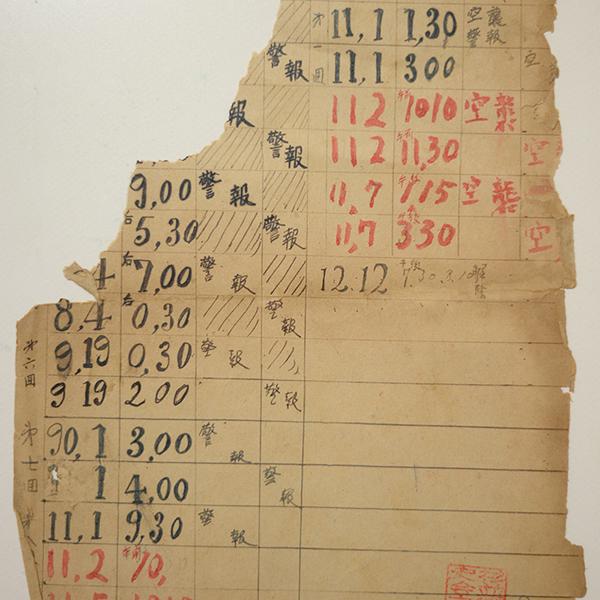 第一回 11,1 1,30 空襲警報
警報 11,1 300
報 112 午前1010 空襲
警報 112 午前11,30 空
9,00 警報 11,7 午後115 空襲
右 5,30 警報 11,7 午後330 空
4 右 7,00 警報 12.12 午後7,30 3,10 解除
8,4 右 0,30 警報
第六回 9,19 0,30 警報
9 19 200 警報
第七回 90,1 3,00 警報
1 4,00 警報
11,1 9,30 警報
11,2 午前10,